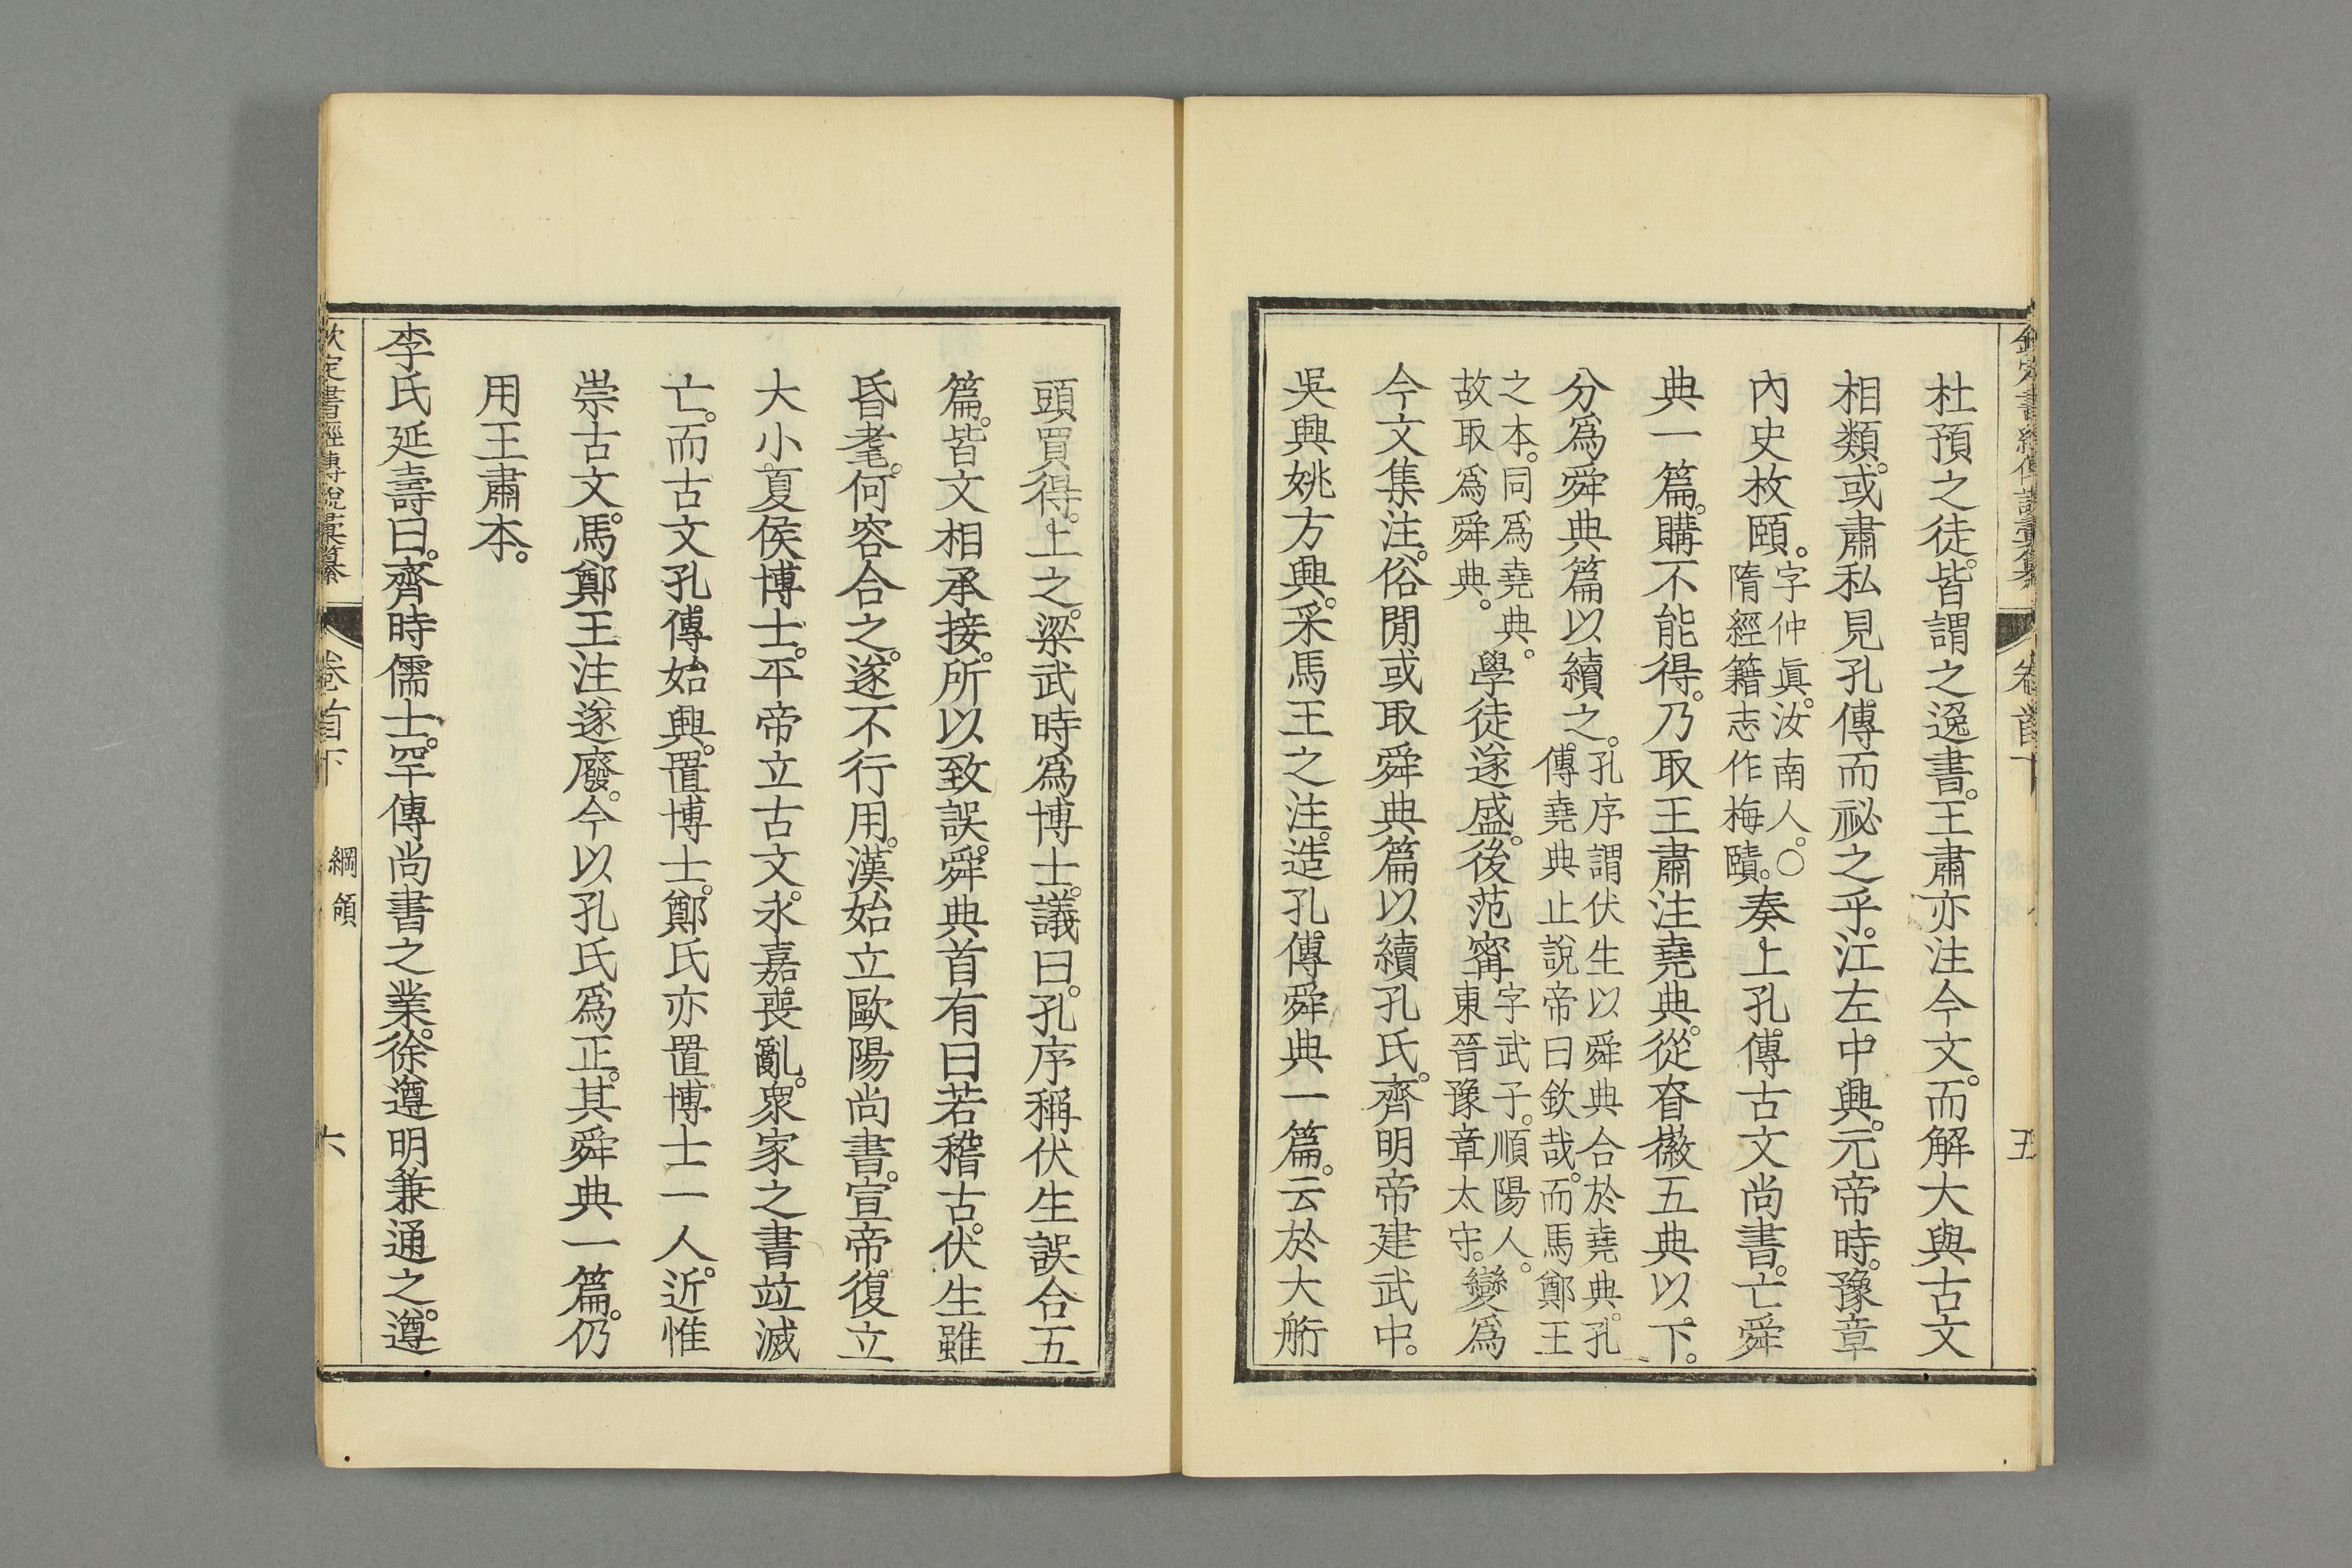 欽定書經傳說彙纂 卷首下 五
杜預之徒。皆謂之逸書。王肅亦注今文。而解大與古文
相類。或肅私見孔傳而祕之乎。江左中興。元帝時。豫章
內史枚頤。字仲眞。汝南人。○隋經籍志作梅賾。奏上孔傳古文尚書。亡舜
典一篇。購不能得。乃取王肅注堯典。從眘徽五典以下。
分爲舜典篇以續之。孔序謂伏生以舜典合於堯典。孔傳堯典止說帝曰欽哉。而馬鄭王
之本。同爲堯典。故取爲舜典。學徒遂盛。後范甯字武子。順陽人。東晉豫章太守。變爲
今文集注。俗閒或取舜典篇以續孔氏。齊明帝建武中。
吳興姚方興。采馬王之注。造孔傳舜典一篇。云於大𦨵
頭買得。上之。梁武時爲博士。議曰。孔序稱伏生誤合五
篇。皆文相承接。所以致誤。舜典首有曰若稽古。伏生雖
昏耄。何容合之。遂不行用。漢始立歐陽尚書。宣帝復立
大小夏侯博士。平帝立古文。永嘉喪亂。衆家之書竝滅
亡。而古文孔傳始興。置博士。鄭氏亦置博士一人。近惟
崇古文。馬鄭王注遂廢。今以孔氏爲正。其舜典一篇。仍
用王肅本。
李氏延壽曰。齊時儒士。罕傳尚書之業。徐遵明兼通之。遵
欽定書經傳說彙纂 卷首下 綱領 六